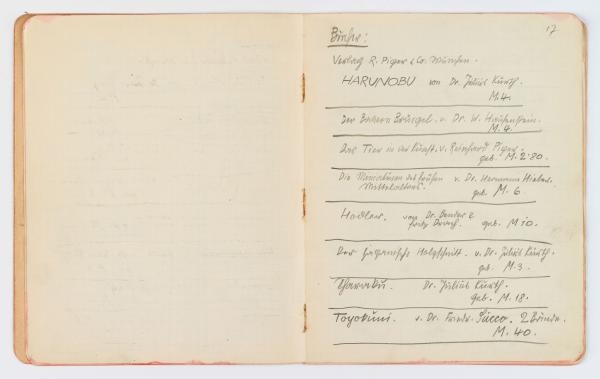 17
Bücher:
Verlag R. Piper & Co. München.
HARUNOBU von Dr. Julius Kurth.
M. 4.
Der Bauern Bruegel. v. Dr. W. Hausenstein.
M. 4.
Das Tier in der Kunst. v. Reinhard Piper.
geb. M. 2.80.
Die Miniaturen des frühen v. Dr. Hermann Hieber.
Mittelalters. geb. M. 6.
Hodler. von Dr. Bender &
geb. M 10.
Der Japanische Holzschnitt. v. Dr. Julius Kurth.
geb. M. 3.
Sharaku. Dr. Julius Kurth.
geb. M. 18.
Toyokuni. v. Dr. Friedr. Succo. 2 Bände.
M. 40.